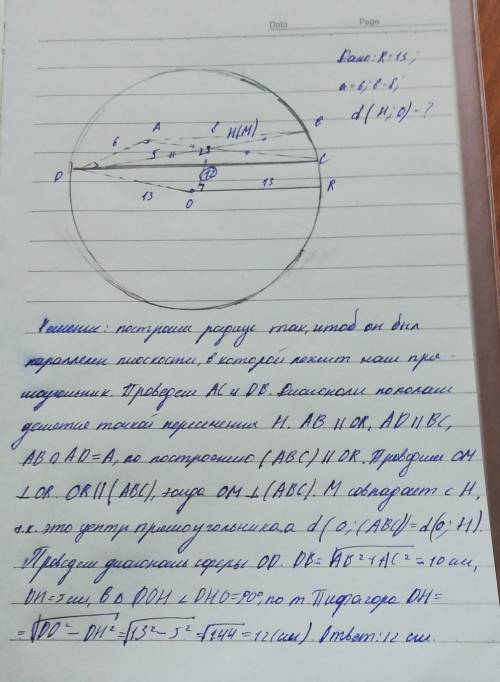 Data Page
Дано: R=13;
a=6; b=8;
d(H;O)-?
A 8 H(M) B
6
5 C
D 12
13 13 R
O
Решение: построим радиус так, чтоб он был
параллелен плоскости, в которой лежит наш пря-
моугольник. Проведем AC и DB. Диагонали пополам
делятся точкой пересечения H. AB || OR, AD || BC,
AB ∩ AD = A, по построению (ABC) || OR. Проведем OM
⊥ OR. OR || (ABC), тогда OM ⊥ (ABC). M совпадает с H,
т.к. это центр прямоугольника, а d(O;(ABC))=d(O;H).
Проведем диагональ сферы OD. DB=√AB²+AC²=10 см,
DH=5 см, В ∆ DOH ∠DHO=90°, по т. Пифагора OH=
=√DO²-DH²=√13²-5²=√144=12(см). Ответ: 12 см.